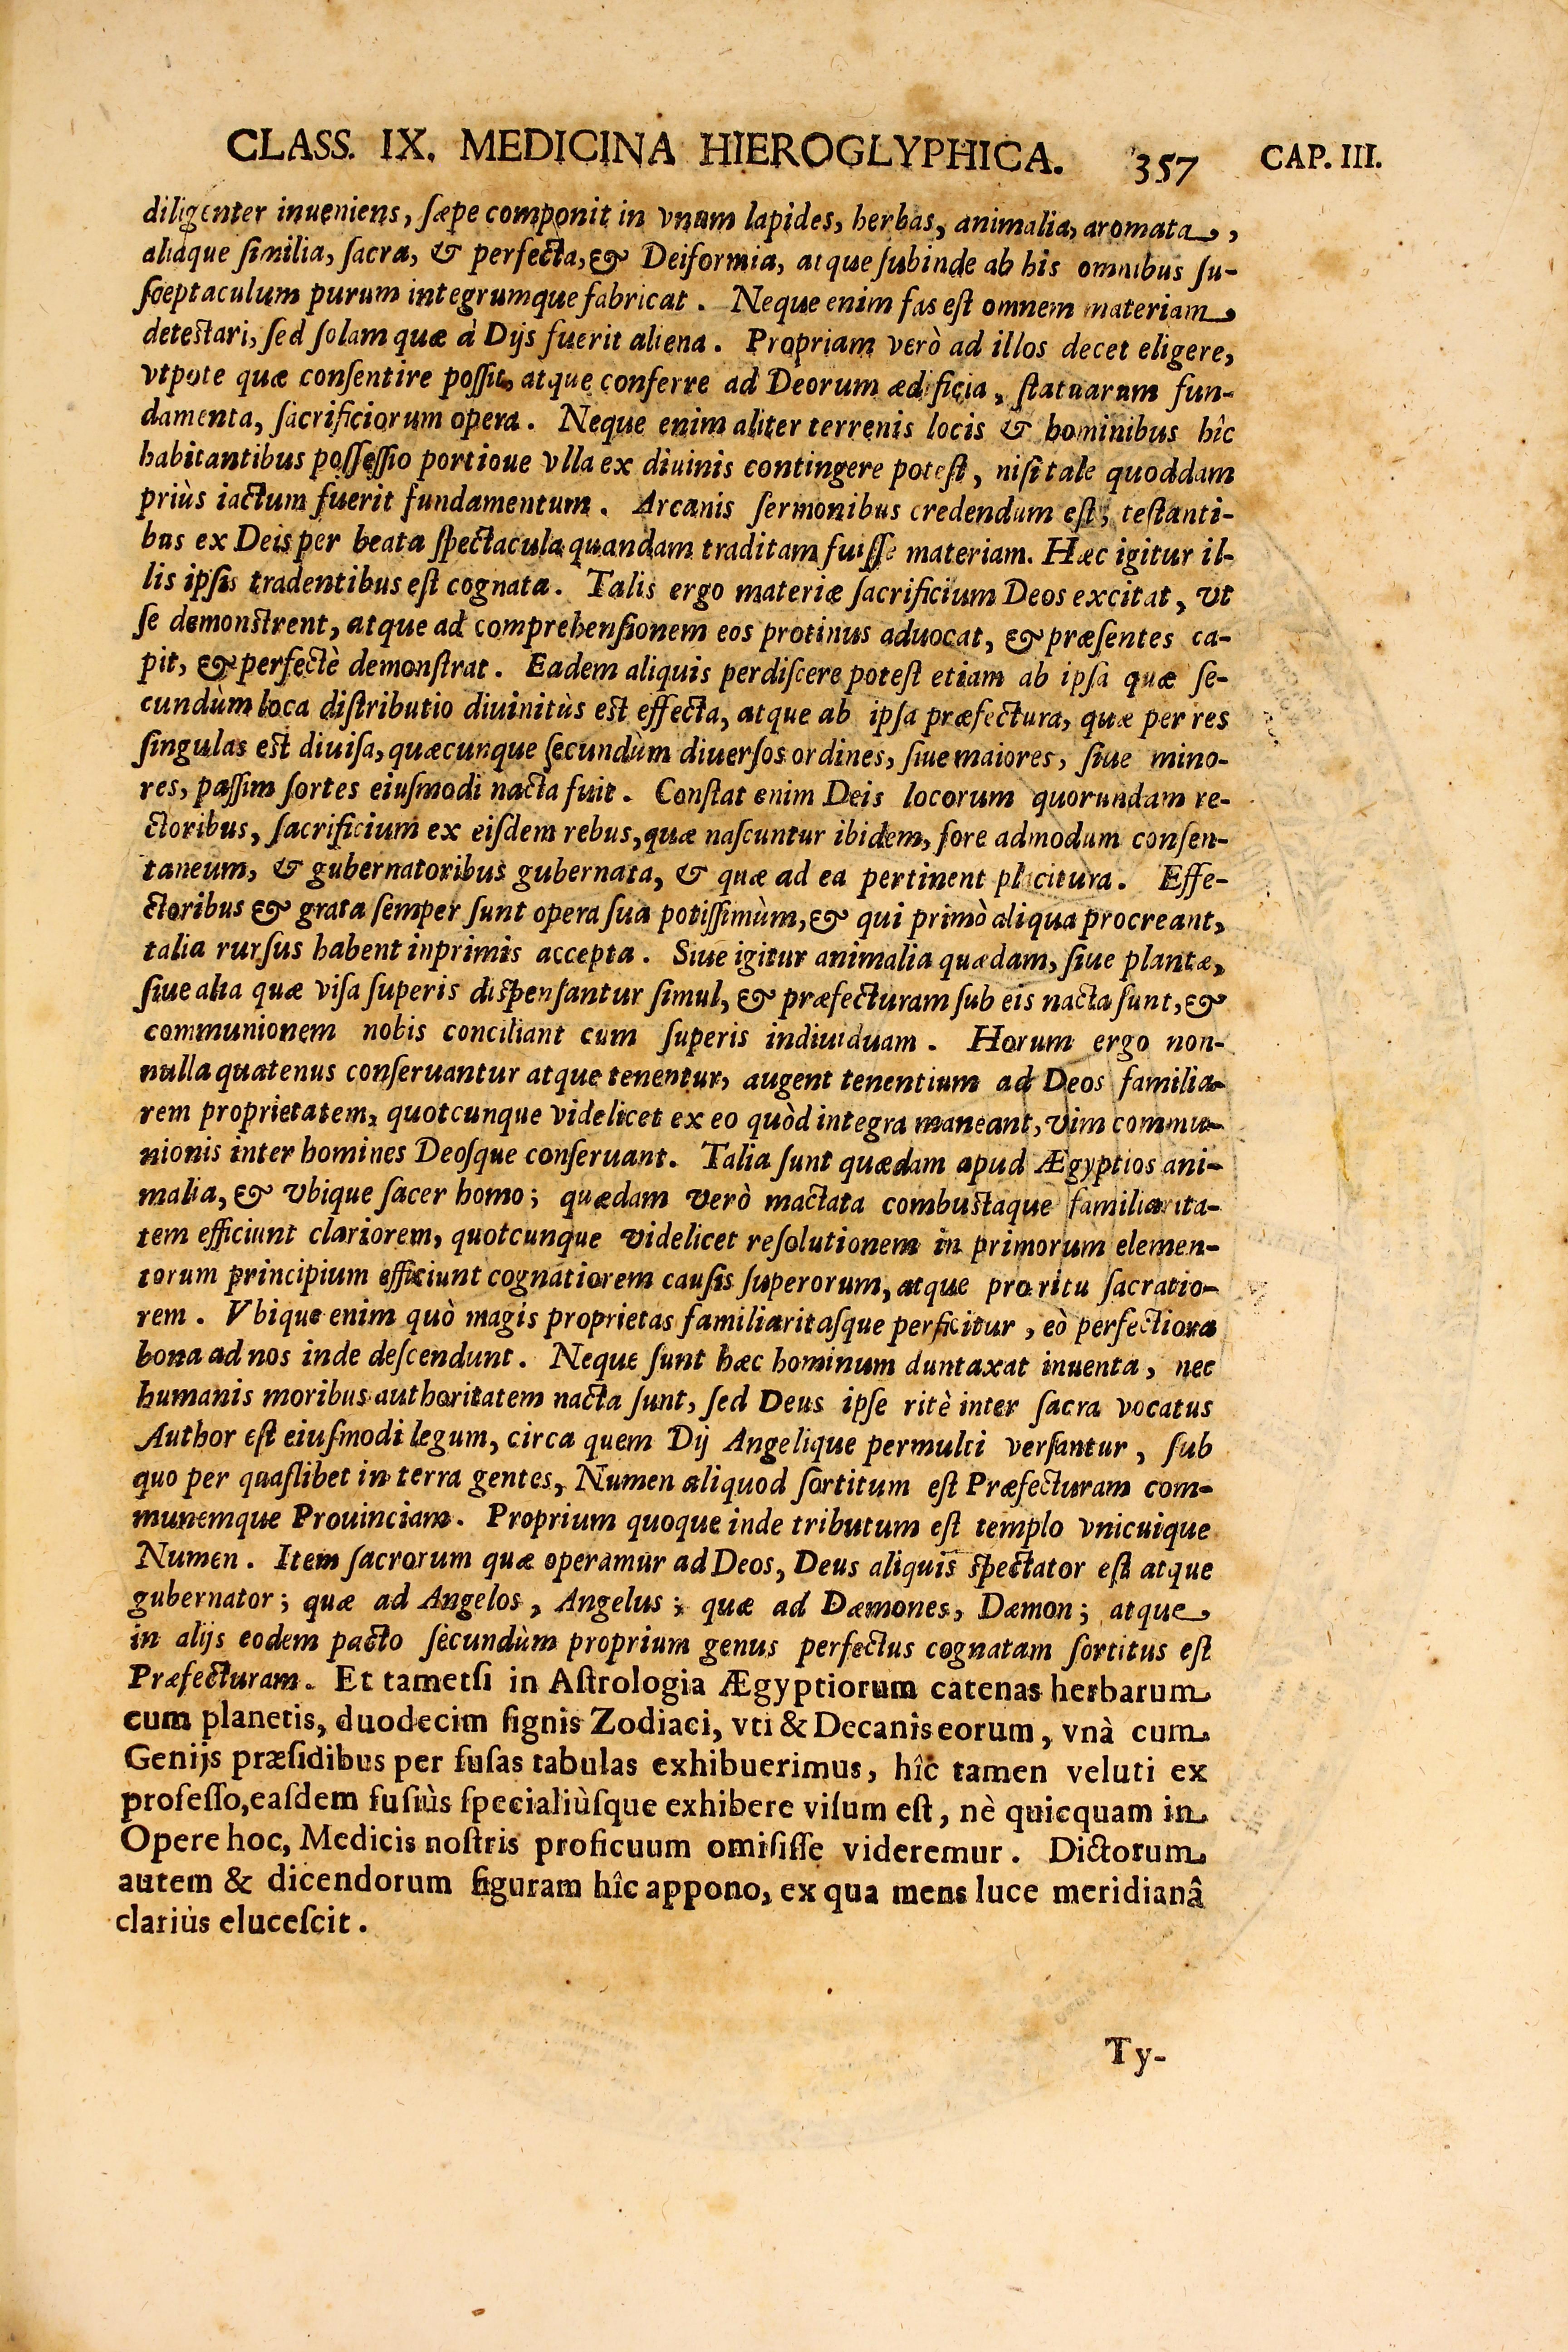 CLASS. IX. MEDICINA HIEROGLYPHICA. 357 CAP. III.
diligenter inueniens, ſæpe componit in vnum lapides, herbas, animalia, aromata,
aliaque ſimilia, ſacra, & perfecta, & Deiformia, atque ſubinde ab his omnibus ſu-
ſceptaculum purum integrumque fabricat. Neque enim fas eſt omnem materiam
deteſtari, ſed ſolam quæ à Dijs fuerit aliena. Propriam verò ad illos decet eligere,
vtpote quæ conſentire poſſit, atque conferre ad Deorum ædificia, ſtatuarum fun-
damenta, ſacrificiorum opera. Neque enim aliter terrenis locis & hominibus hîc
habitantibus poſſeſſio portioue vlla ex diuinis contingere poteſt, niſi tale quoddam
priùs iactum fuerit fundamentum. Arcanis ſermonibus credendum eſt, teſtanti-
bus ex Deis per beata ſpectacula quandam traditam fuiſſe materiam. Hæc igitur il-
lis ipſis tradentibus eſt cognata. Talis ergo materiæ ſacrificium Deos excitat, vt
ſe demonſtrent, atque ad comprehenſionem eos protinus aduocat, & præſentes ca-
pit, & perfectè demonſtrat. Eadem aliquis perdiſcere poteſt etiam ab ipſa quæ ſe-
cundùm loca diſtributio diuinitùs eſt effecta, atque ab ipſa præfectura, quæ per res
ſingulas eſt diuiſa, quæcunque ſecundùm diuerſos ordines, ſiue maiores, ſiue mino-
res, paſſim ſortes eiuſmodi nacta fuit. Conſtat enim Deis locorum quorundam re-
ctoribus, ſacrificium ex eiſdem rebus, quæ naſcuntur ibidem, fore admodum conſen-
taneum, & gubernatoribus gubernata, & quæ ad ea pertinent placitura. Effe-
ctoribus & grata ſemper ſunt opera ſua potiſſimùm, & qui primò aliqua procreant,
talia rurſus habent inprimis accepta. Siue igitur animalia quædam, ſiue plantæ,
ſiue alia quæ viſa ſuperis diſpenſantur ſimul, & præfecturam ſub eis nacta ſunt, &
communionem nobis conciliant cum ſuperis indiuiduam. Horum ergo non-
nulla quatenus conſeruantur atque tenentur, augent tenentium ad Deos familia-
rem proprietatem, quotcunque videlicet ex eo quòd integra maneant, vim commu-
nionis inter homines Deoſque conſeruant. Talia ſunt quædam apud Ægyptios ani-
malia, & vbique ſacer homo; quædam verò mactata combuſtaque familiarita-
tem efficiunt clariorem, quotcunque videlicet reſolutionem in primorum elemen-
torum principium efficiunt cognatiorem cauſis ſuperorum, atque pro ritu ſacratio-
rem. Vbique enim quò magis proprietas familiaritaſque perficitur, eò perfectiora
bona ad nos inde deſcendunt. Neque ſunt hæc hominum duntaxat inuenta, nec
humanis moribus authoritatem nacta ſunt, ſed Deus ipſe ritè inter ſacra vocatus
Author eſt eiuſmodi legum, circa quem Dij Angelique permulti verſantur, ſub
quo per quaſlibet in terra gentes, Numen aliquod ſortitum eſt Præfecturam com-
munemque Prouinciam. Proprium quoque inde tributum eſt templo vnicuique
Numen. Item ſacrorum quæ operamur ad Deos, Deus aliquis ſpectator eſt atque
gubernator; quæ ad Angelos, Angelus; quæ ad Dæmones, Dæmon; atque
in alijs eodem pacto ſecundùm proprium genus perfectus cognatam ſortitus eſt
Præfecturam. Et tametſi in Aſtrologia Ægyptiorum catenas herbarum
cum planetis, duodecim ſignis Zodiaci, vti & Decanis eorum, vnà cum
Genijs præſidibus per fuſas tabulas exhibuerimus, hîc tamen veluti ex
profeſſo, eaſdem fuſiùs ſpecialiùſque exhibere viſum eſt, nè quicquam in
Opere hoc, Medicis noſtris proficuum omiſiſſe videremur. Dictorum
autem & dicendorum figuram hîc appono, ex qua mens luce meridianâ
clariùs eluceſcit.
Ty-